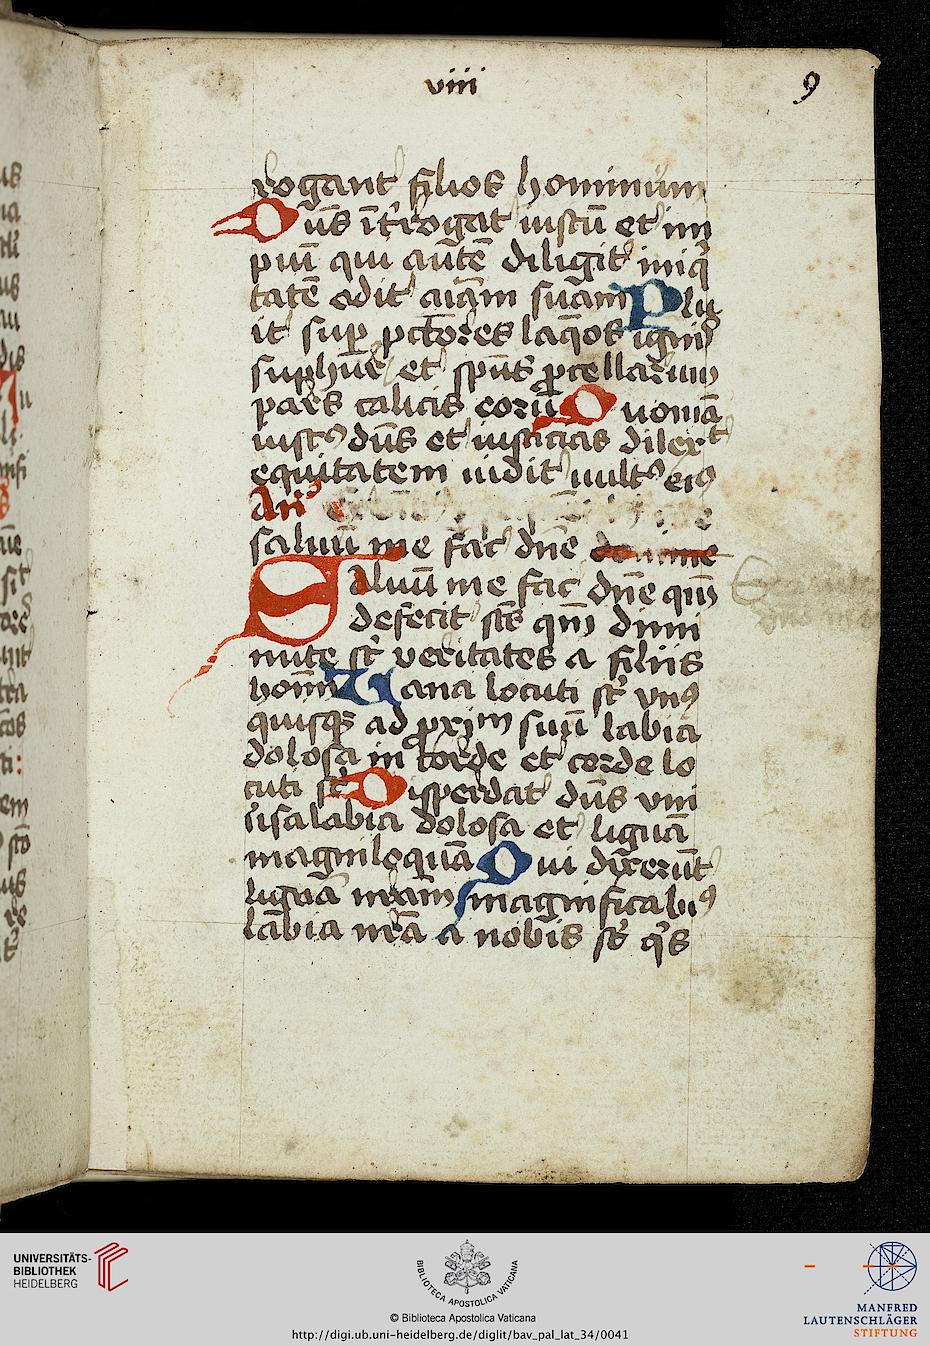 viii
9
rogant filios hominum
Dn̄s īt'rogat iustū et im
piū qui autē diligit iniq̄
tatē odit aīam suam Plu
it sup pctōres laq̄os ignis
sulphur et spūs pcellarum
pars calicis eorū Quoniā
iustꝰ dn̄s et iusticias dilexͭ
equitatem uidit uultꝰ eiꝰ
An̄
saluū me fac dn̄e domine
Saluū me fac dn̄e qm̄
defecit scs̄ qm̄ dimi
nute st̄ veritates a filiis
homīn Uana locuti st̄ vnꝰ
quisqꝫ ad pxīm suū labia
dolosa in corde et corde lo
cuti st̄ Disperdat dn̄s vni
v'sa labia dolosa et liguā
magniloquā Qui dixerūt
liguā nr̄am magnificabiꝰ
labia nr̄a a nobis st̄ q's
UNIVERSITÄTS-
BIBLIOTHEK
HEIDELBERG
BIBLIOTECA APOSTOLICA VATICANA
© Biblioteca Apostolica Vaticana
http://digi.ub.uni-heidelberg.de/diglit/bav_pal_lat_34/0041
MANFRED
LAUTENSCHLÄGER
STIFTUNG